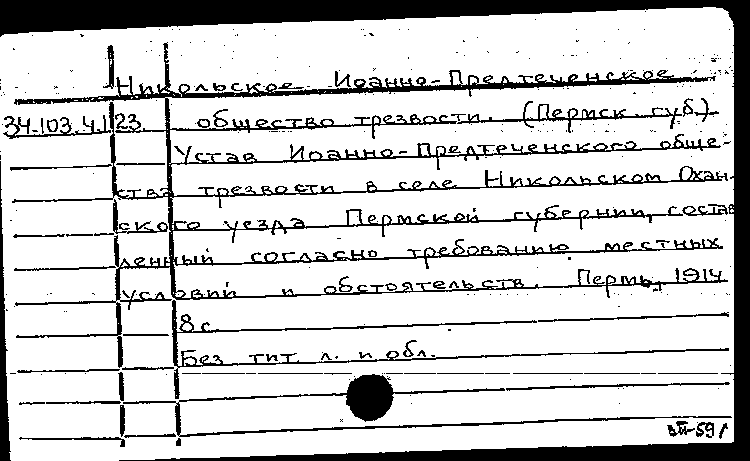 Никольское Иоанно-Предтеченское
34.103.4.123. общество трезвости. (Пермск. губ.)
Устав Иоанно-Предтеченского обще-
ства трезвости в селе Никольском Охан-
ского уезда Пермской губернии, состав
ленный согласно требованию местных
условий и обстоятельств. Пермь, 1914
8 с.
Без тит. л. и обл.